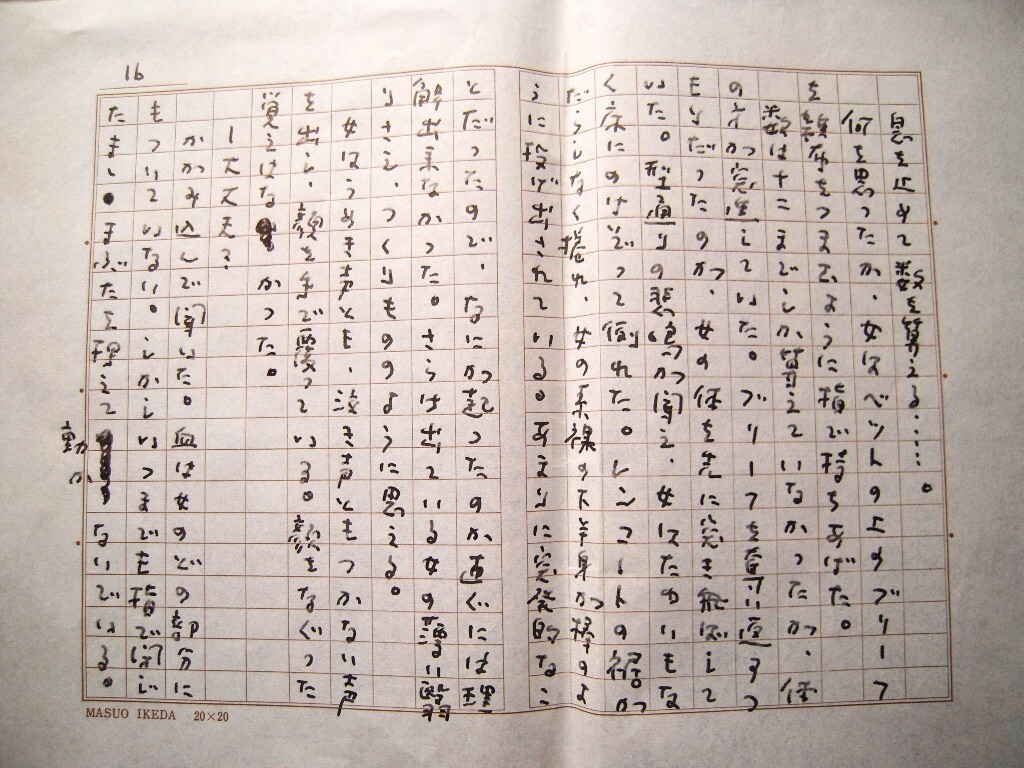 16
息を止めて数を算える……。
何を思ったか、女はベットの上のブリーフ
つまむように指で持ちあげた。
数は十二まででしか算えていなかったが、僕
の方が していた。ブリーフを 返すつ
もりだったのか、女の体を 突き飛ばして
いた。型通りの悲鳴が聞え、女はたわいもな
く床にのけぞって倒れた。レンコートの裾が
だらしなく捲れ、女の素裸の下半身が のよ
うに投げ出されている。あまりに突発的なこ
とだったので、なにが起ったのか直ぐには理
解出来なかった。さらけ出ている女の薄い陰毛
さえ、つくりもののように思える。
女はうめき声とも、泣き声ともつかない声
を出し、顔を手で覆っている。顔をなぐった
覚えはなかった。
かがみ込んで聞いた。血は女のどの部分に
もついていない。しかし いつまでも指で閉じ
たまま まぶたを押えて 動かないでいる。
MASUO IKEDA 20×20